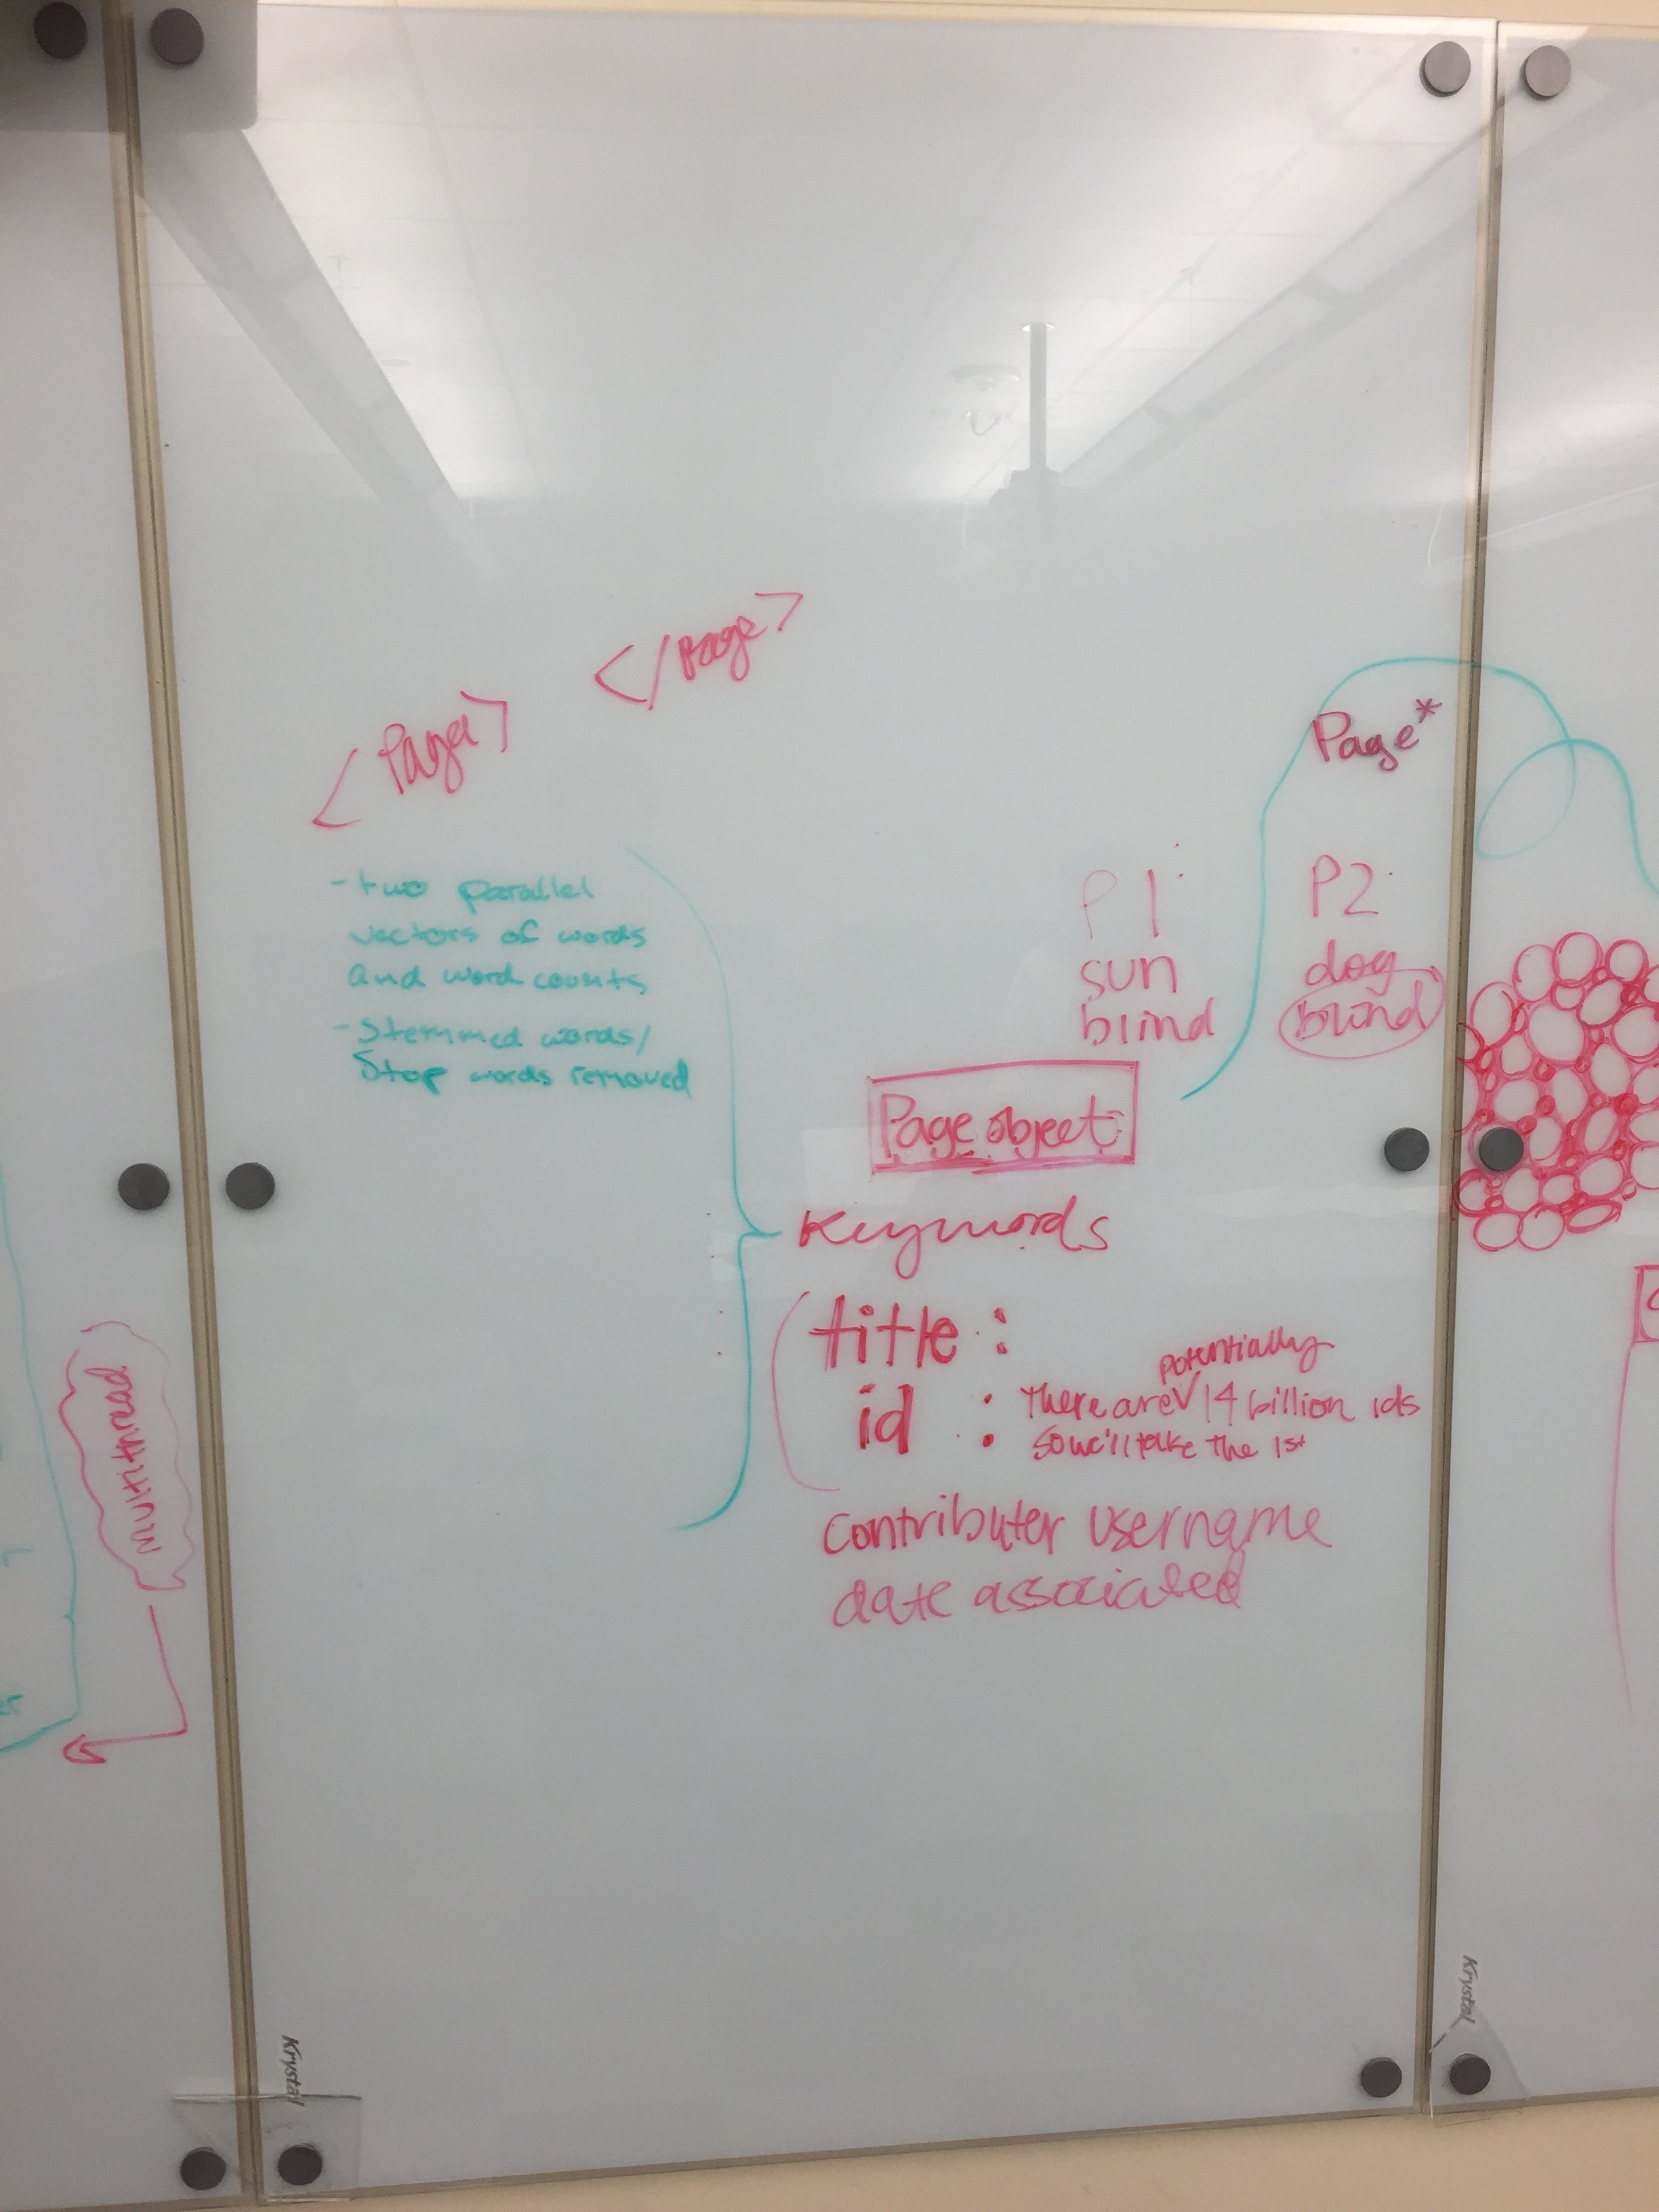 </page>
<Page>
Page*
- two parallel
vectors of words
and word counts
- Stemmed words/
Stop words removed
P1
sun
blind
P2
dog
blind
Page object
Keywords
title :
potentially
id : there are 14 billion ids
so we'll take the 1st
Contributer username
date associated
Multithread
Krystal
Krystal